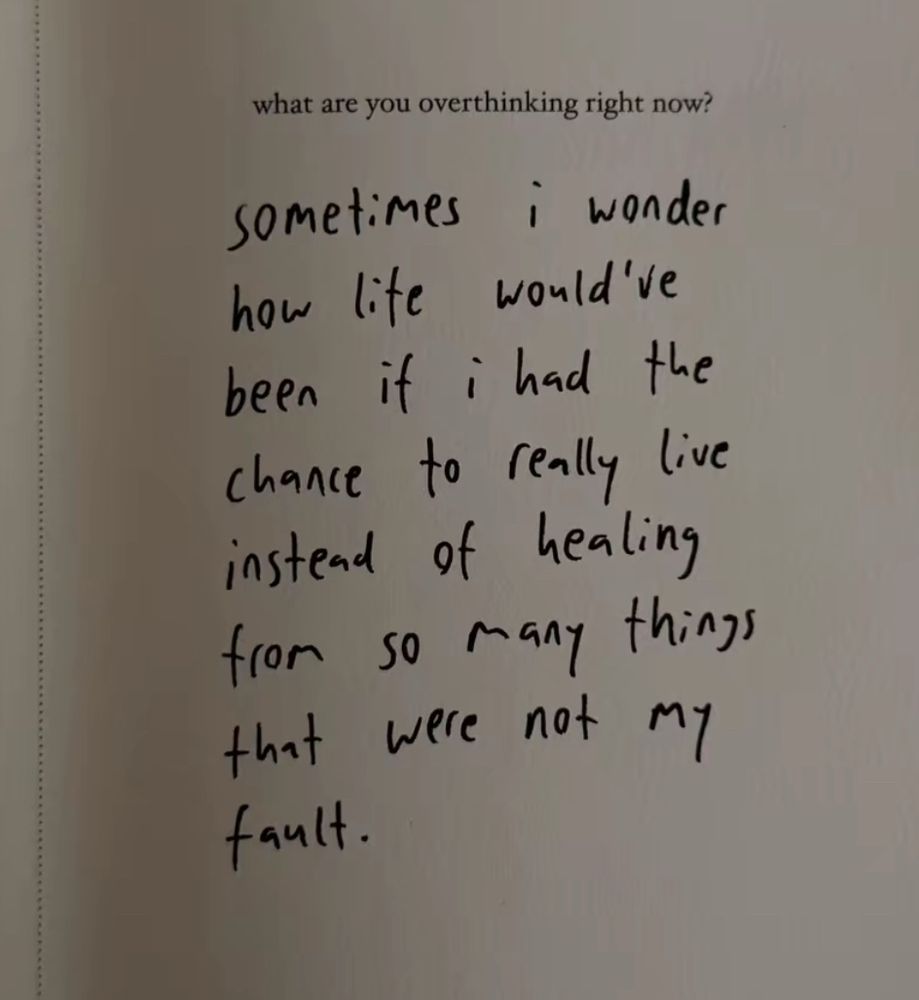 what are you overthinking right now?
sometimes i wonder
how life would've
been if i had the
chance to really live
instead of healing
from so many things
that were not my
fault.